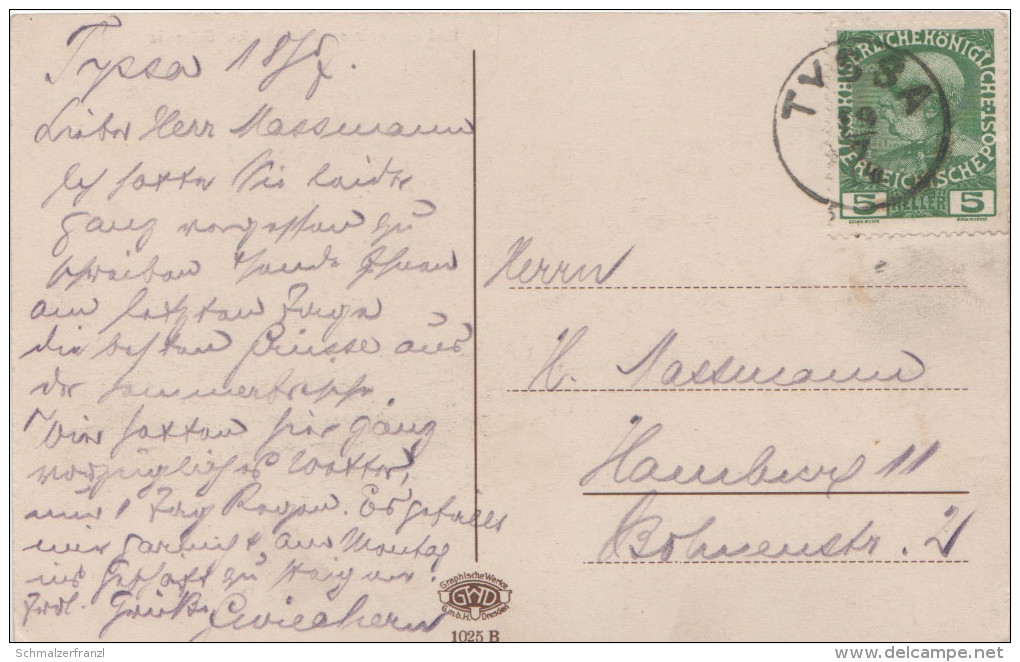 Tyssa 18/7.
Lieber Herr Massmann
Ich hatte Sie leider
ganz vergessen zu
schreiben sende Ihnen
am letzten Tage
die besten Grüsse aus
der Sommerfrische.
Wir hatten hier ganz
vorzügliches Wetter,
nur 1 Tag Regen. Es gefällt
mir garnicht, am Montag
ins Geschäft zu steigen.
Frdl. Grüße
TYSSA
KAISERLICHEKÖNIGLICHE POST
ÖSTERREICHISCHE
5 HELLER 5
Herrn
H. Massmann
Hamburg 11
Bohnenstr. 2
Graphische Werke
GWD
G.m.b.H. Dresden
1025 B
Schmalzerfranzl
delcampe.net